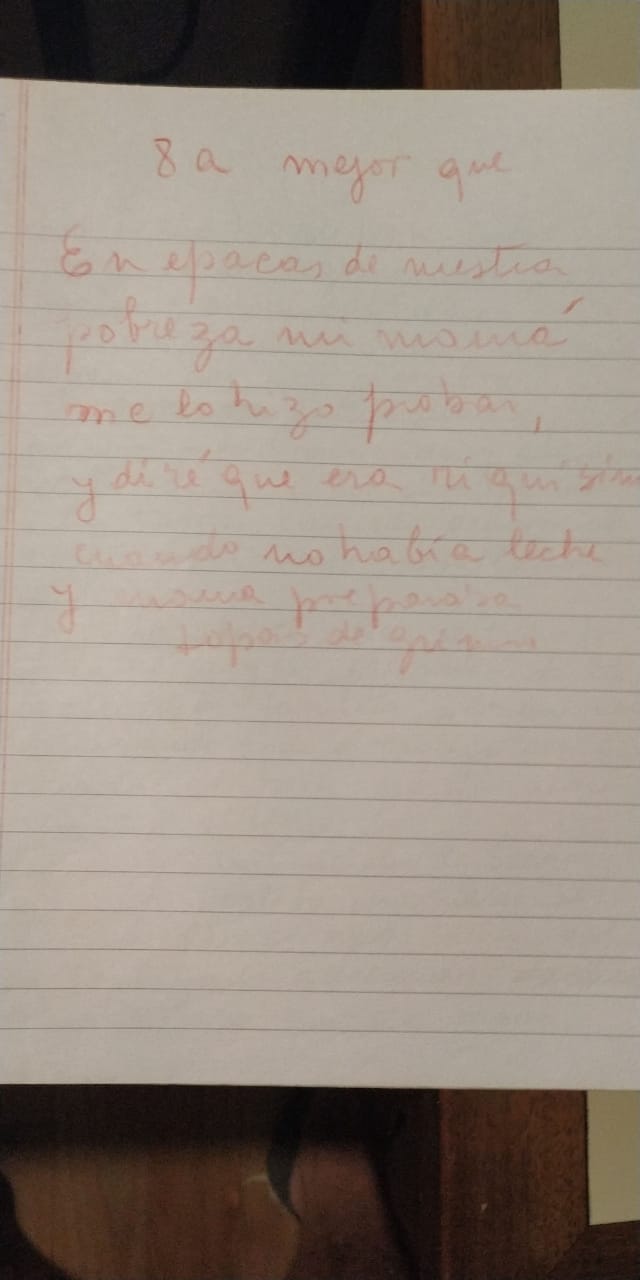 8a mejor que
En epacas de nuestra
pobreza mi mamá
me lo hizo probar,
y diré que era riquisim
cuando no había leche
y mama preparara
sopas de